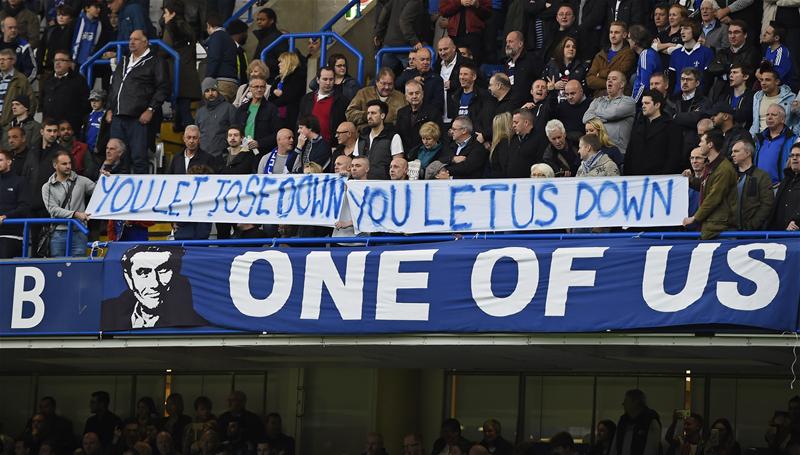 YOU LET JOSE DOWN YOU LET US DOWN
B ONE OF US